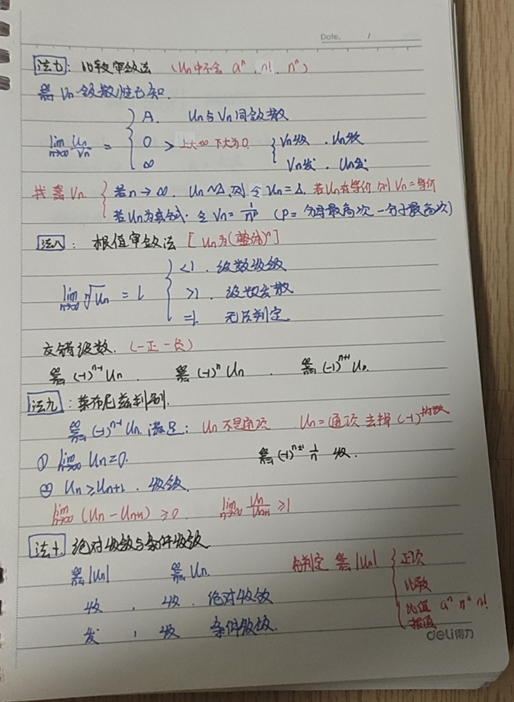 Date. /
法七: 比较审敛法 (Un中不含 aⁿ, n!, nⁿ)
若 Vn 级数性已知.
lim n→∞ Un/Vn = { A. Un与Vn同敛散
0 > 上大∞ 下大为0. { Vn收. Un收
∞ Vn发. Un发
找 Vn { 若n→∞. Un~Δ, 则令Vn=Δ. 若Un有等价 则Vn=等价
若Un为真分式. 令Vn=1/nᴾ (P=分母最高次-分子最高次)
法八: 根值审敛法 [Un为(整体)ⁿ]
lim n→∞ ⁿ√Un = l { <1. 级数收敛
>1. 级数发散
=1. 无法判定
交错级数. (一正一负)
Σ(-1)ⁿ⁻¹Un. Σ(-1)ⁿUn. Σ(-1)ⁿ⁺¹Un.
法九: 莱布尼兹判别.
Σ(-1)ⁿ⁻¹Un 满足: Un不是通项 Un=通项去掉(-1)
① lim n→∞ Un=0. Σ(-1)ⁿ⁺¹ 1/n 收.
② Un≥Un+1. 收敛
lim n→∞ (Un-Un+1)≥0 lim n→∞ Un/Un+1 ≥1
法十 绝对收敛与条件收敛
Σ|Un| ΣUn 判定 Σ|Un| { 正项
收, 收. 绝对收敛 比较
发, 收 条件收敛. 比值 aⁿ nⁿ n!
根值
deli得力